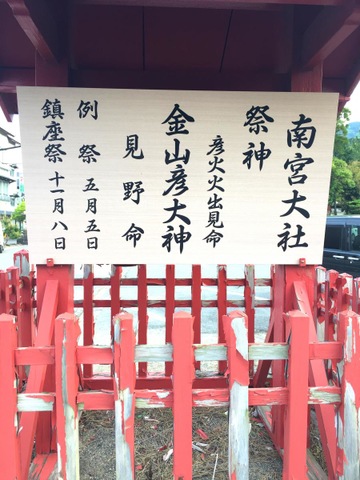 南宮大社
祭神
彦火火出見命
金山彦大神
見野命
例祭 五月五日
鎮座祭 十一月八日